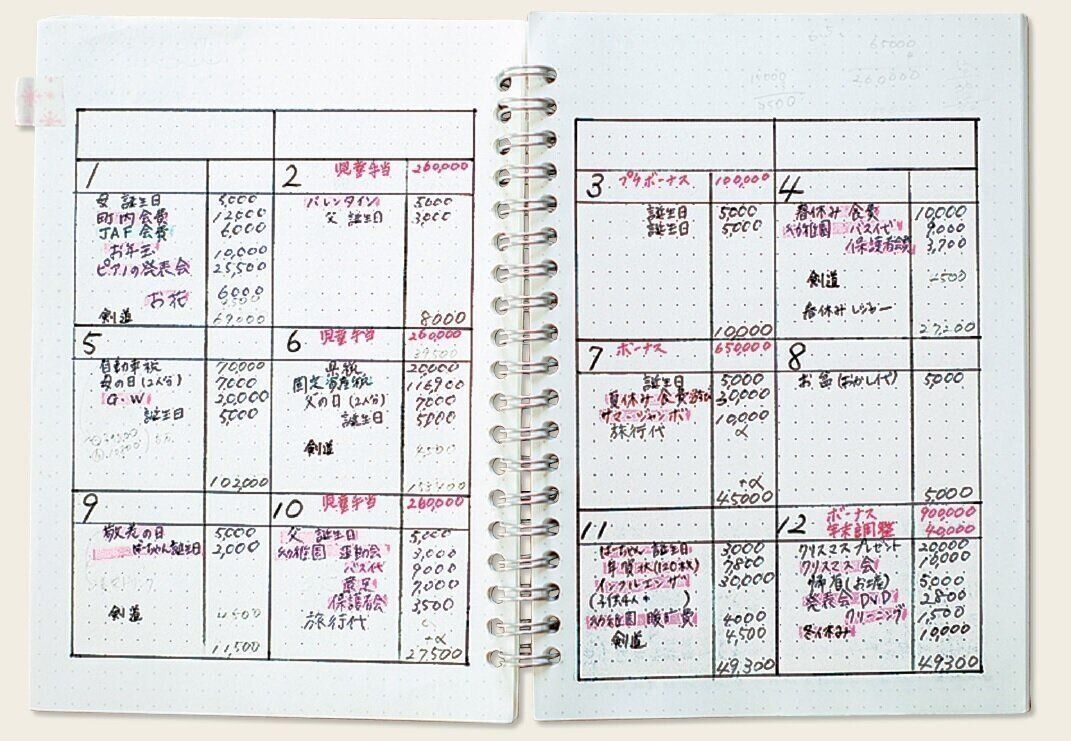 1
母 誕生日 5,000
町内会費 12000
JAF会費 6000
お年玉 10,000
ピアノの発表会 25,500
お花 6000
剣道 4500
69,000
2 児童手当 260,000
バレンタイン 5000
父 誕生日 3,000
8000
5
自動車税 70,000
母の日(2人分) 7000
G・W 20,000
誕生日 5,000
102,000
6 児童手当 260,000
39500
県税 20000
固定資産税 116900
父の日(2人分) 7000
誕生日 5000
剣道 4,500
9
敬老の日 5,000
ばーちゃん誕生日 2,000
剣道 4500
11,500
10 児童手当 260,000
父 誕生日 5,000
幼稚園 運動会 3,000
バス代 9000
遠足 7,000
保護者会 3500
旅行代 α
+α
27,500
65000
260000
3 プチボーナス 100,000
誕生日 5,000
誕生日 5,000
10,000
4
春休み 食費 10,000
幼稚園 バス代 9000
保護者会費 3,700
剣道 4500
春休みレジャー
27,200
7 ボーナス 650,000
誕生日 5,000
夏休み 食費 30,000
サマージャンボ 10,000
旅行代 α
+α
45000
8
お盆(おかし代) 5,000
5,000
11
ばーちゃん 誕生日 3000
年賀状(120枚) 7800
インフルエンザ 30,000
(子供4人+ )
幼稚園 暖房費 4000
剣道 4,500
49,300
12 ボーナス 900000
年末調整 40000
クリスマスプレゼント 20000
クリスマス会 10,000
帰省(お歳) 5000
発表会 DVD 2800
クリーニング 1,500
冬休み 10,000
49,300